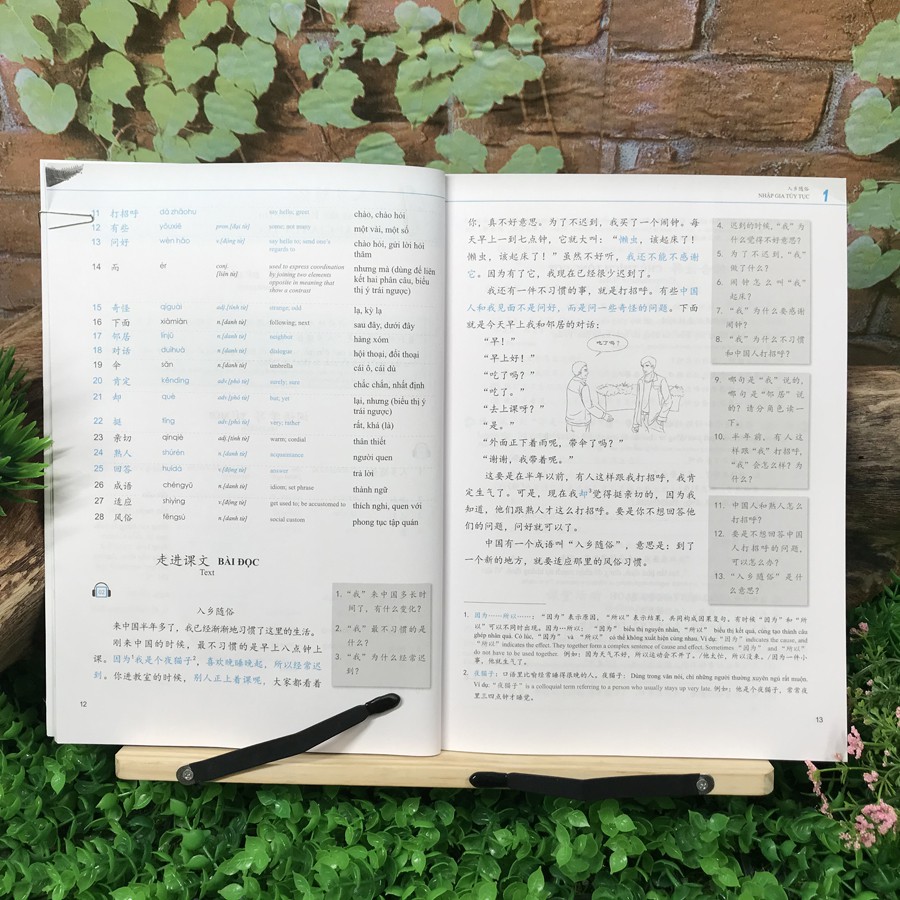 11 打招呼 dǎ zhāohu say hello, greet chào, chào hỏi
12 有些 yǒuxiē pron.[đại từ] some; not many một vài, một số
13 问好 wèn hǎo v.[động từ] say hello to; send one's regards to chào hỏi, gửi lời hỏi thăm
14 而 ér conj. [liên từ] used to express coordination by joining two elements opposite in meaning that show a contrast nhưng mà (dùng để liên kết hai phân câu, biểu thị ý trái ngược)
15 奇怪 qíguài adj.[tính từ] strange, odd lạ, kỳ lạ
16 下面 xiàmiàn n.[danh từ] following; next sau đây, dưới đây
17 邻居 línjū n.[danh từ] neighbor hàng xóm
18 对话 duìhuà n.[danh từ] dialogue hội thoại, đối thoại
19 伞 sǎn n.[danh từ] umbrella cái ô, cái dù
20 肯定 kěndìng adv.[phó từ] surely; sure chắc chắn, nhất định
21 却 què adv.[phó từ] but, yet lại, nhưng (biểu thị ý trái ngược)
22 挺 tǐng adv.[phó từ] very; rather rất, khá (là)
23 亲切 qīnqiè adj.[tính từ] warm; cordial thân thiết
24 熟人 shúrén n.[danh từ] acquaintance người quen
25 回答 huídá v.[động từ] answer trả lời
26 成语 chéngyǔ n.[danh từ] idiom; set phrase thành ngữ
27 适应 shìyìng v.[động từ] get used to; be accustomed to thích nghi, quen với
28 风俗 fēngsú n.[danh từ] social custom phong tục tập quán
走进课文 BÀI ĐỌC
Text
入乡随俗
来中国半年多了，我已经渐渐地习惯了这里的生活。
刚来中国的时候，最不习惯的是早上八点钟上
课。因为¹我是个夜猫子²，喜欢晚睡晚起，所以经常迟
到。你进教室的时候，别人正上着课呢，大家都看着
1. “我”来中国多长时
间了，有什么变化？
2. “我”最不习惯的是
什么？
3. “我”为什么经常迟
到？
12
入乡随俗
NHẬP GIA TÙY TỤC 1
你，真不好意思。为了不迟到，我买了一个闹钟。每
天早上一到七点钟，它就大叫：“懒虫，该起床了！
懒虫，该起床了！”虽然不好听，我还不能不感谢
它。因为有了它，我现在已经很少迟到了。
我还有一件不习惯的事，就是打招呼。有些中国
人和我见面不是问好，而是问一些奇怪的问题。下面
就是今天早上我和邻居的对话：
“早！”
“早上好！”
“吃了吗？”
“吃了。”
“去上课呀？”
“是。”
“外面正下着雨呢，带伞了吗？”
“谢谢，我带着呢。”
吃了吗？
这要是在半年以前，有人这样跟我打招呼，我肯
定生气了。可是，现在我却³觉得挺亲切的，因为我
知道，他们跟熟人才这么打招呼。要是你不想回答他
们的问题，问好就可以了。
中国有一个成语叫“入乡随俗”，意思是：到了
一个新的地方，就要适应那里的风俗习惯。
4. 迟到的时候，“我”为
什么觉得不好意思？
5. 为了不迟到，“我”
做了什么？
6. 闹钟怎么叫“我”
起床？
7. “我”为什么要感谢
闹钟？
8. “我”为什么不习惯
和中国人打招呼？
9. 哪句是“我”说的，
哪句是“邻居”说
的？请分角色读一
下。
10. 半年前，有人这
样跟“我”打招呼，
“我”会怎么样？为
什么？
11. 中国人和熟人怎么
打招呼？
12. 要是不想回答中国
人打招呼的问题，
可以怎么办？
13. “入乡随俗”是什
么意思？
1. 因为……所以……：“因为”表示原因，“所以”表示结果，共同构成因果复句，有时候“因为”和“所
以”可以不同时出现。因为…所以：“因为” biểu thị nguyên nhân, “所以” biểu thị kết quả, cùng tạo thành câu
ghép nhân quả. Có lúc, “因为” và “所以” có thể không xuất hiện cùng nhau. Ví dụ: “因为” indicates the cause, and
“所以” indicates the effect. They together form a complex sentence of cause and effect. Sometimes “因为” and “所以”
do not have to be used together. 例如：因为天气不好，所以运动会不开了。/他太忙，所以没来。/因为一件小
事，他就生气了。
2. 夜猫子：口语里比喻经常睡得很晚的人。夜猫子：Dùng trong văn nói, chỉ những người thường xuyên ngủ rất muộn.
Ví dụ: “夜猫子” is a colloquial term referring to a person who usually stays up very late. 例如：他是个夜猫子，常常夜
里三四点钟才睡觉。
13